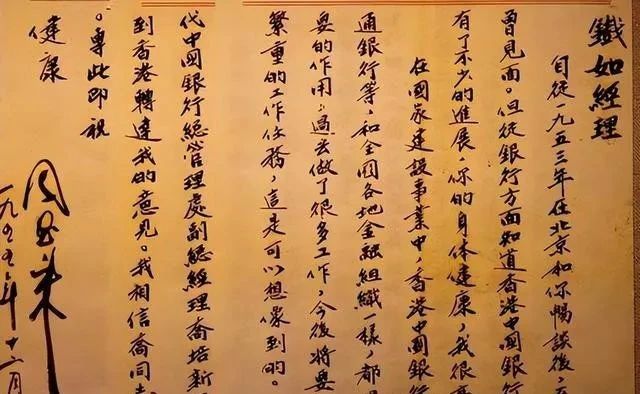 鐵如經理
自從一九五三年在北京和你暢談後，
曾見面。但從銀行方面知道香港中國銀行
有了不少的進展，你的身体健康，我很
在國家建設事業中，香港中國銀
通銀行等，和全國各地金融組織一樣，都
要的作用，過去做了很多工作，今後將要
繁重的工作任務，這是可以想像到的。
代中國銀行總管理處副總經理喬培新
到香港轉達我的意見。我相信喬同
。專此即祝
健康
周恩来
一九五五年十二月